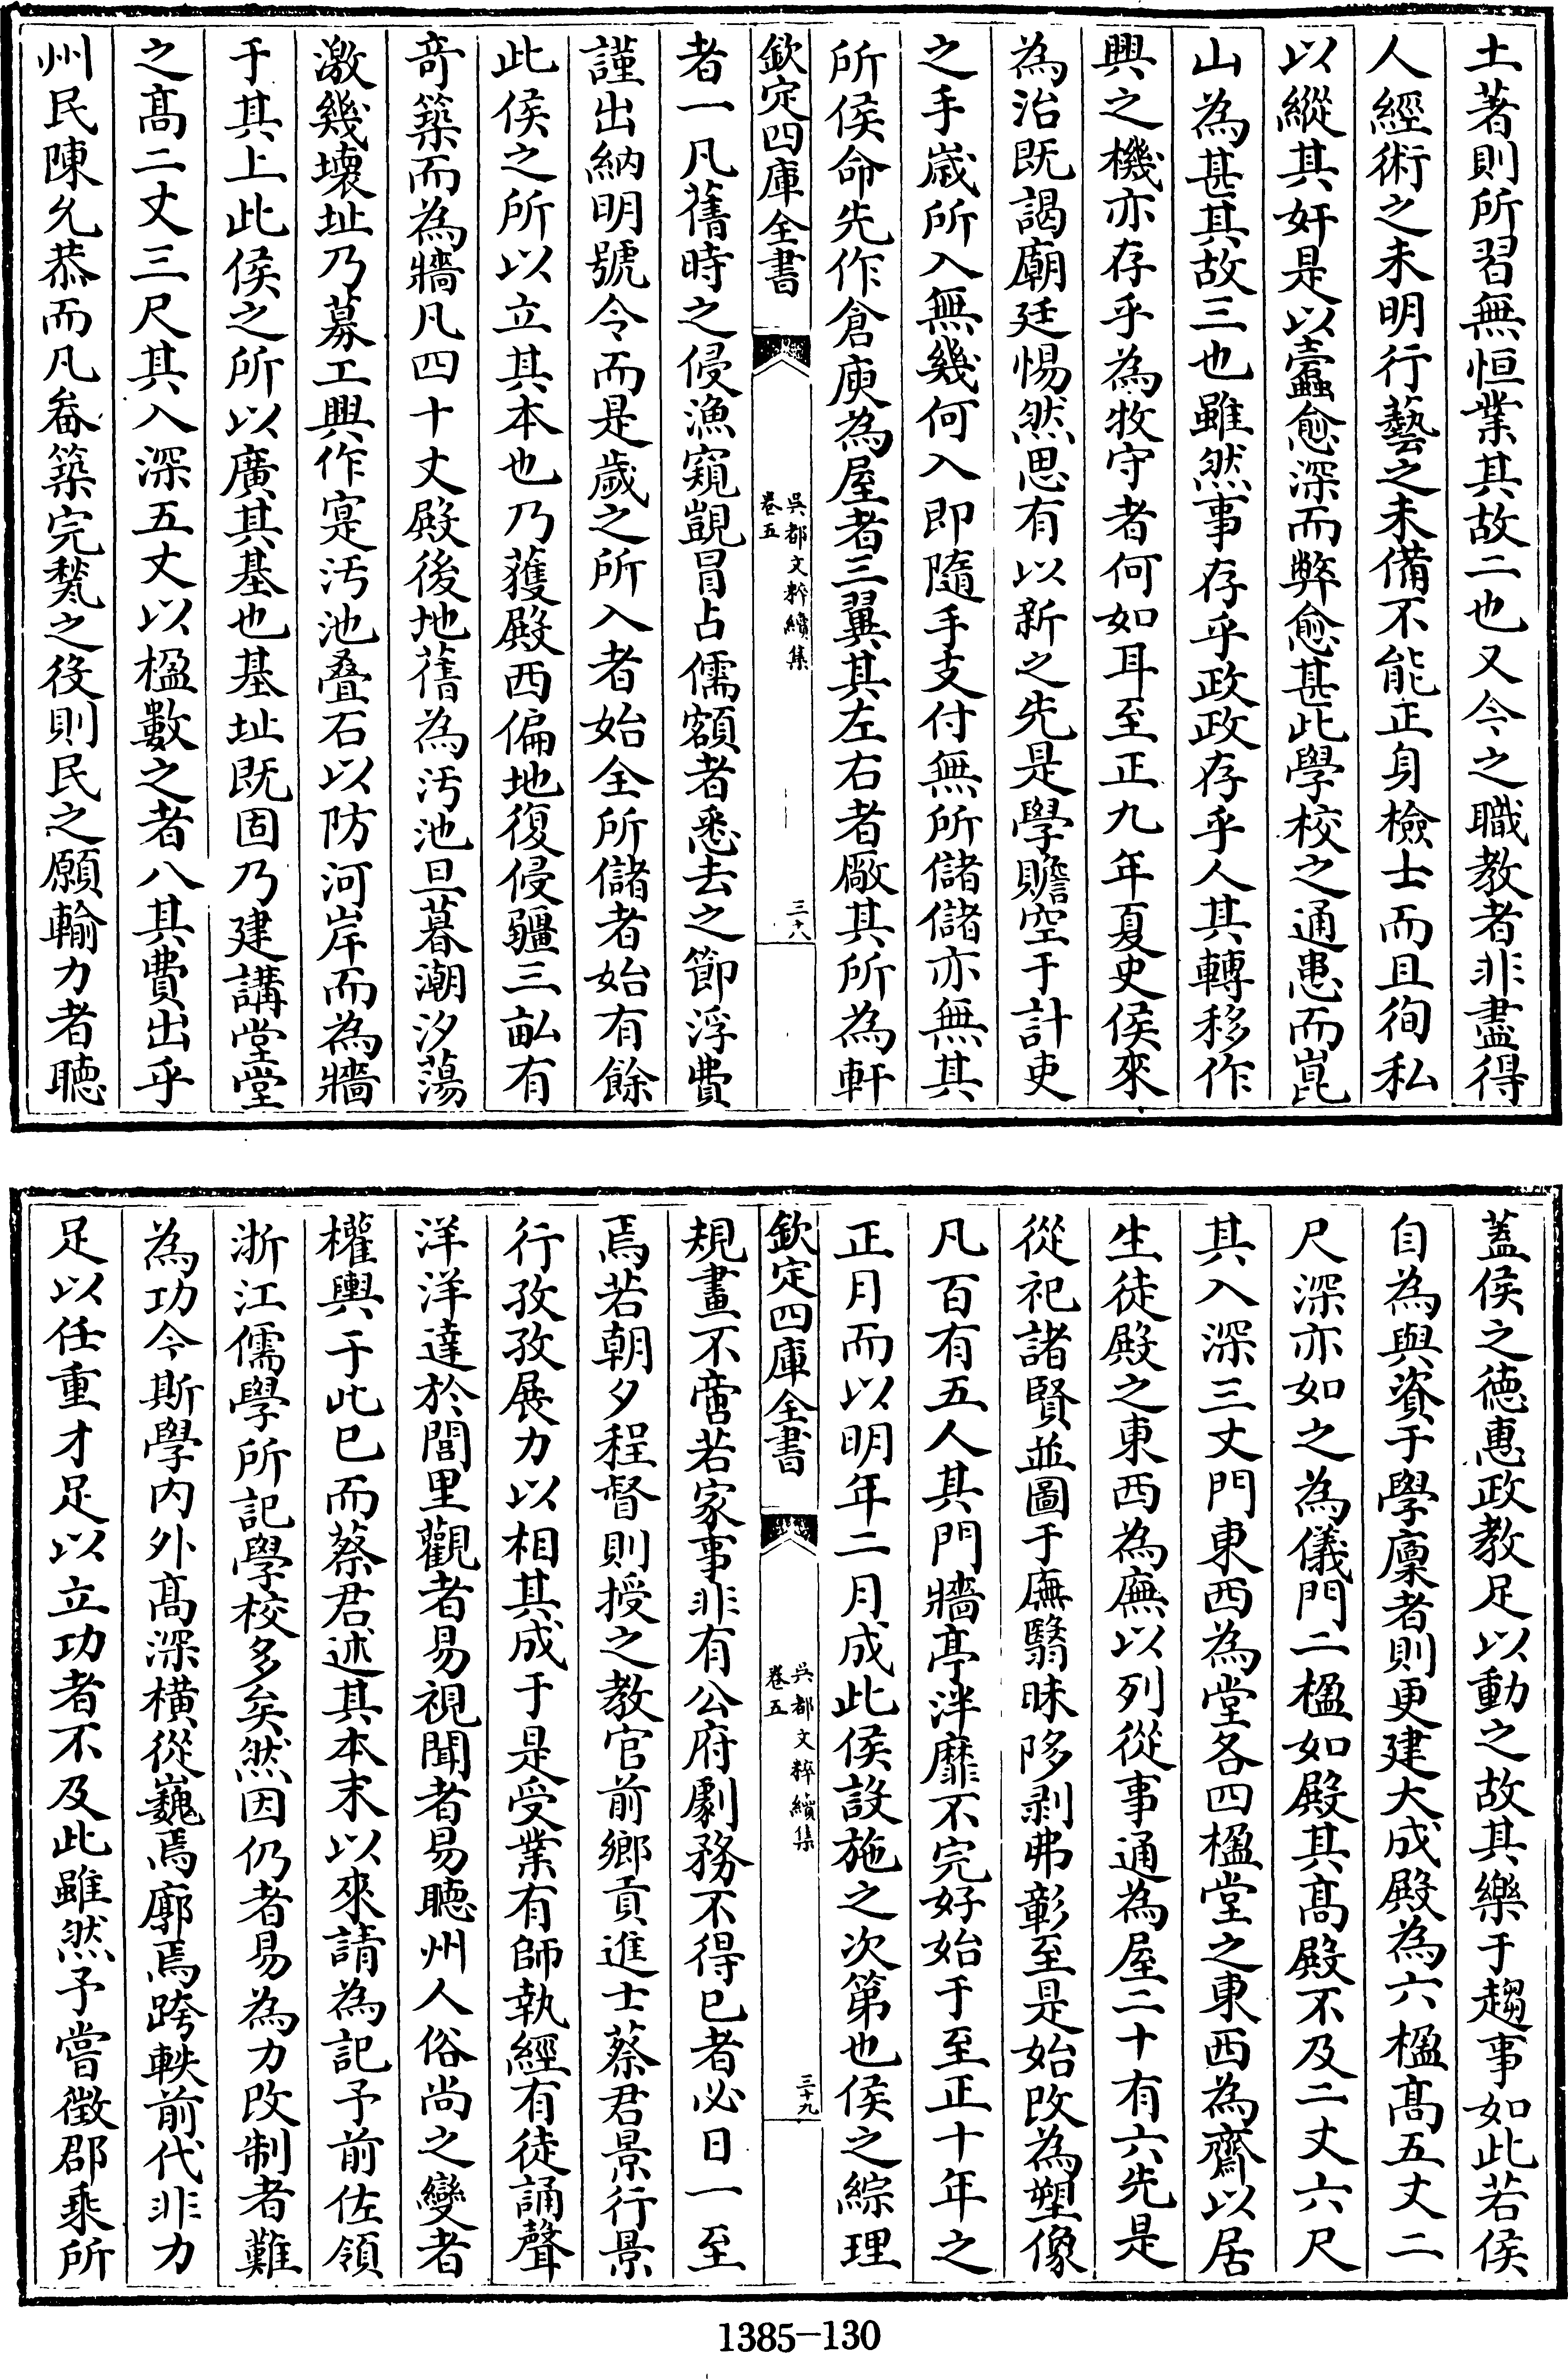 土著則所習無恒業其故二也又今之職教者非盡得
人經術之未明行藝之未備不能正身檢士而且徇私
以縱其奸是以蠧愈深而弊愈甚此學校之通患而崑
山為甚其故三也雖然事存乎政政存乎人其轉移作
興之機亦存乎為牧守者何如耳至正九年夏史侯來
為治既謁廟廷惕然思有以新之先是學贍空于計吏
之手歲所入無幾何入即隨手支付無所儲儲亦無其
所侯命先作倉庾為屋者三翼其左右者廠其所為軒
欽定四庫全書
吳都文粹續集
卷五
三十八
者一凡舊時之侵漁窺覬冒占儒額者悉去之節浮費
謹出納明號令而是歲之所入者始全所儲者始有餘
此侯之所以立其本也乃獲殿西偏地復侵疆三畝有
奇築而為牆凡四十丈殿後地舊為汚池旦暮潮汐蕩
激幾壞址乃募工興作寔汚池叠石以防河岸而為牆
于其上此侯之所以廣其基也基址既固乃建講堂堂
之高二丈三尺其入深五丈以楹數之者八其費出乎
州民陳允恭而凡畚築完甃之役則民之願輸力者聽
蓋侯之德惠政教足以動之故其樂于趨事如此若侯
自為與資于學廩者則更建大成殿為六楹高五丈二
尺深亦如之為儀門二楹如殿其高殿不及二丈六尺
其入深三丈門東西為堂各四楹堂之東西為齋以居
生徒殿之東西為廡以列從事通為屋二十有六先是
從祀諸賢並圖于廡翳昧陊剥弗彰至是始改為塑像
凡百有五人其門牆亭泮靡不完好始于至正十年之
正月而以明年二月成此侯設施之次第也侯之綜理
欽定四庫全書
吳都文粹續集
卷五
三十九
規畫不啻若家事非有公府劇務不得已者必日一至
焉若朝夕程督則授之教官前鄉貢進士蔡君景行景
行孜孜展力以相其成于是受業有師執經有徒誦聲
洋洋達於閭里觀者易視聞者易聽州人俗尚之變者
權輿于此已而蔡君述其本末以來請為記予前佐領
浙江儒學所記學校多矣然因仍者易為力改制者難
為功今斯學内外高深橫從巍焉廓焉跨軼前代非力
足以任重才足以立功者不及此雖然予嘗徴郡乘所
1385－130